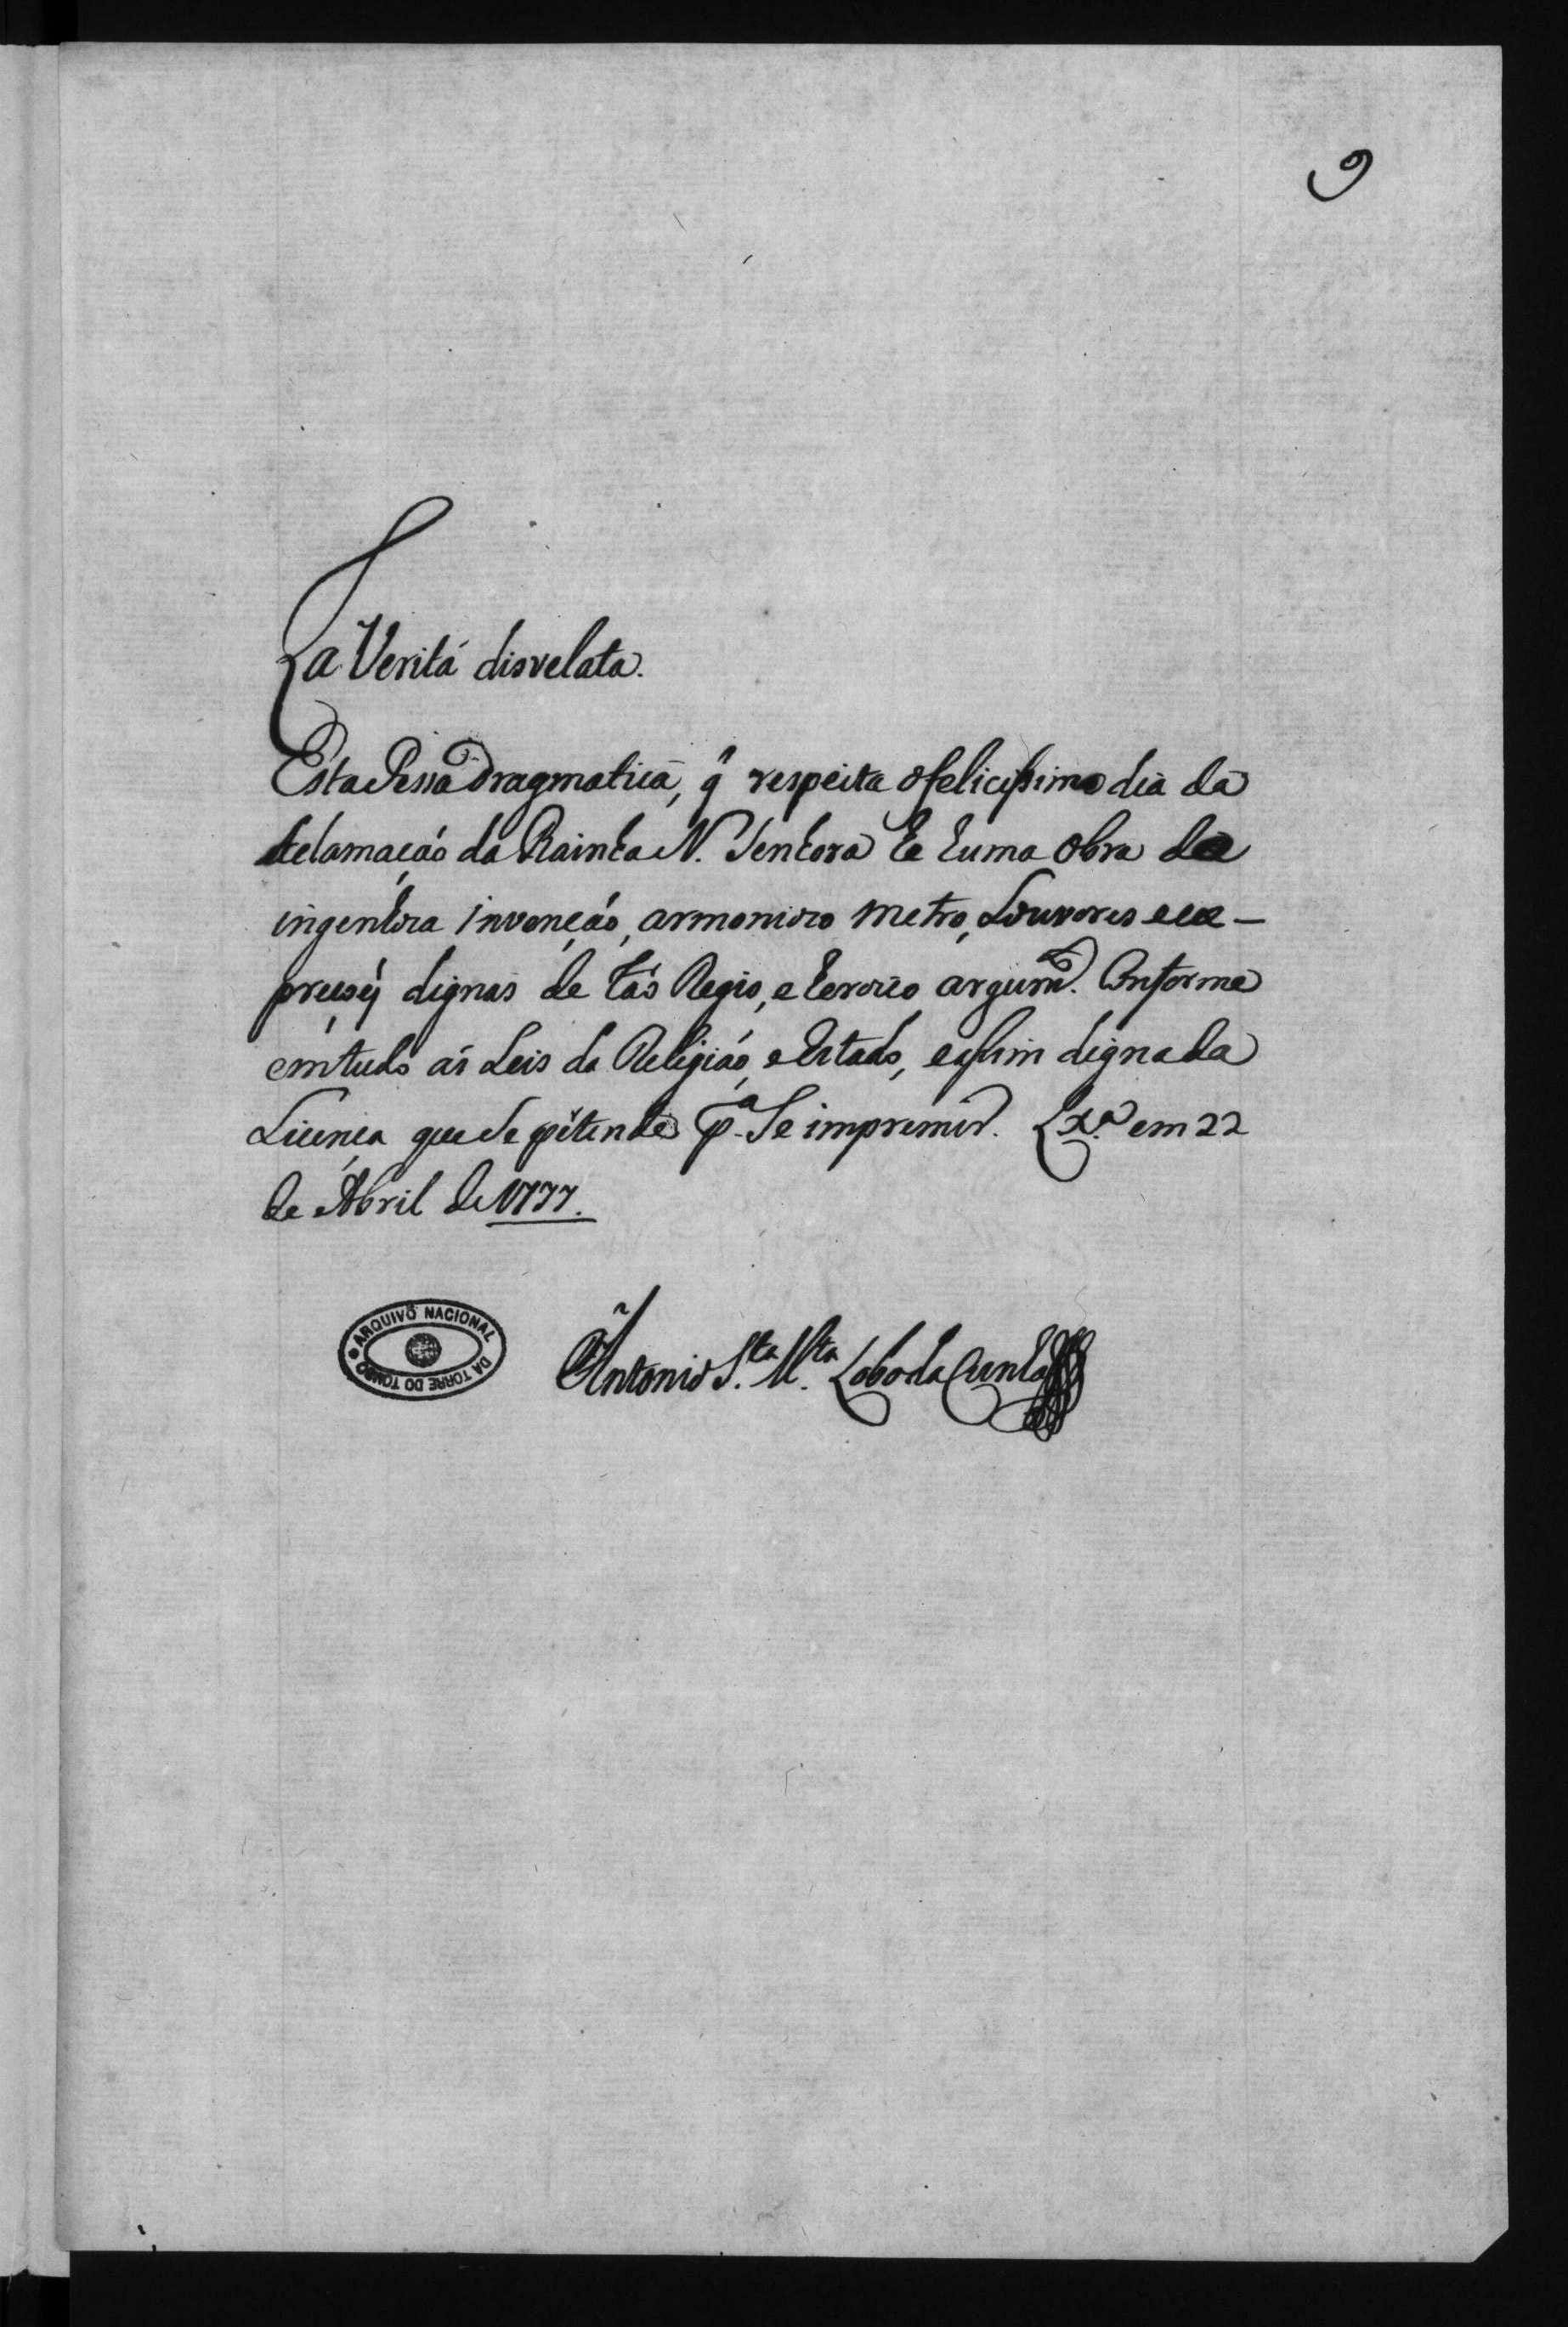 9
La Veritá disvelata.
Esta Pessa Dragmatica, q̃ respeita o felicissimo dia da
Aclamaçaó da Rainha N. Senhora he huma obra de
ingenhoza invençaó, armonioso metro, Louvores e ex-
preçoẽs dignas de taó Regio, e heroico argum.to Conforme
em tudo ás Leis da Religiaó, e Estado, e assim digna da
Licença que se p̃tende p.a Se impremir. Lx.a em 22
de Abril de 1777.
Antonio S.ta M.ta Lobo da Cunha
ARQUIVO NACIONAL DA TORRE DO TOMBO